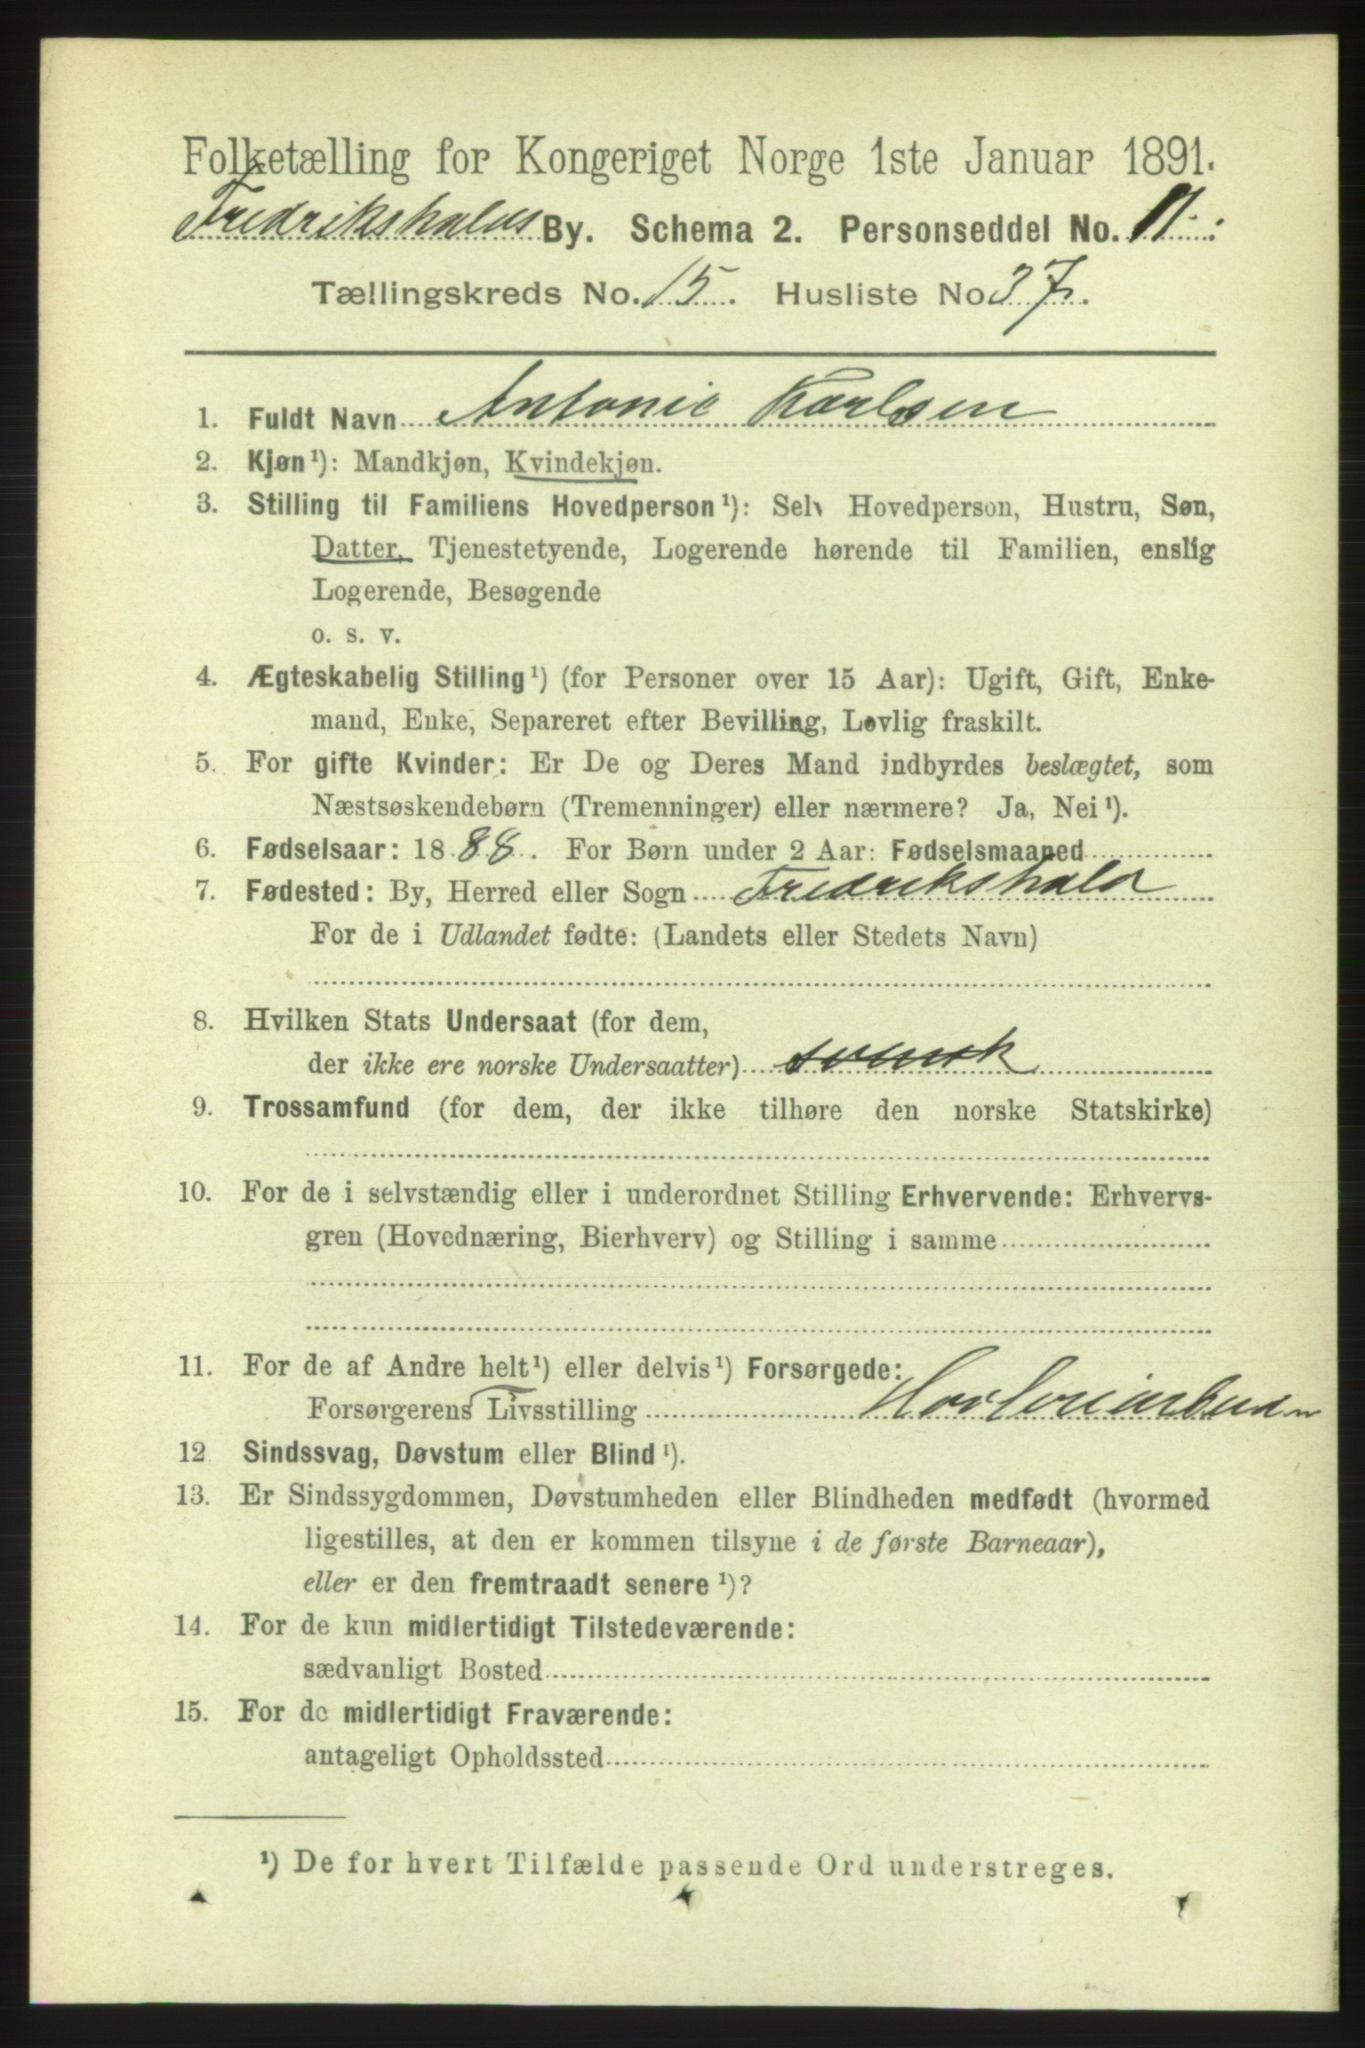 Folketælling for Kongeriget Norge 1ste Januar 1891.
Fredrikshalds By. Schema 2. Personseddel No. 11.
Tællingskreds No. 15. Husliste No 37.
1. Fuldt Navn Antonie Karlsen
2. Kjøn ¹): Mandkjøn, Kvindekjøn.
3. Stilling til Familiens Hovedperson ¹): Selv Hovedperson, Hustru, Søn,
Datter, Tjenestetyende, Logerende hørende til Familien, enslig
Logerende, Besøgende
o. s. v.
4. Ægteskabelig Stilling ¹) (for Personer over 15 Aar): Ugift, Gift, Enke-
mand, Enke, Separeret efter Bevilling, Lovlig fraskilt.
5. For gifte Kvinder: Er De og Deres Mand indbyrdes beslægtet, som
Næstsøskendebørn (Tremenninger) eller nærmere? Ja, Nei ¹).
6. Fødselsaar: 1888. For Børn under 2 Aar: Fødselsmaaned
7. Fødested: By, Herred eller Sogn Fredrikshald
For de i Udlandet fødte: (Landets eller Stedets Navn)
8. Hvilken Stats Undersaat (for dem,
der ikke ere norske Undersaatter) svensk
9. Trossamfund (for dem, der ikke tilhøre den norske Statskirke)
10. For de i selvstændig eller i underordnet Stilling Erhvervende: Erhvervs-
gren (Hovednæring, Bierhverv) og Stilling i samme
11. For de af Andre helt ¹) eller delvis ¹) Forsørgede:
Forsørgerens Livsstilling
12 Sindssvag, Døvstum eller Blind ¹).
13. Er Sindssygdommen, Døvstumheden eller Blindheden medfødt (hvormed
ligestilles, at den er kommen tilsyne i de første Barneaar),
eller er den fremtraadt senere ¹)?
14. For de kun midlertidigt Tilstedeværende:
sædvanligt Bosted
15. For de midlertidigt Fraværende:
antageligt Opholdssted
¹) De for hvert Tilfælde passende Ord understreges.